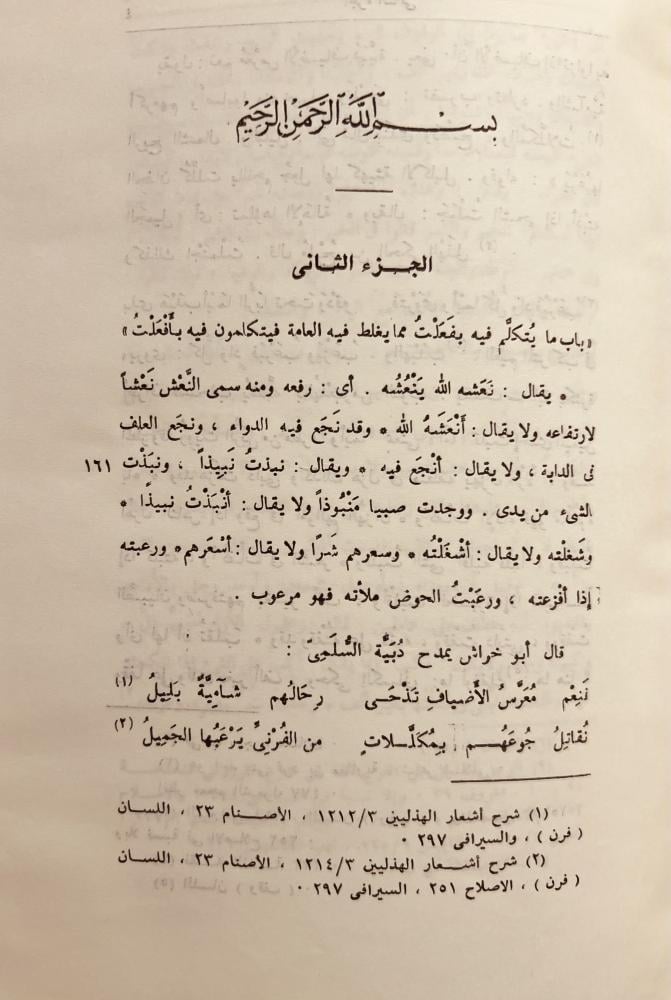 بسم الله الرحمن الرحيم
الجزء الثانى
«باب ما يُتكلَّم فيه بفَعَلْتُ مما يغلط فيه العامة فيتكلمون فيه بأَفْعَلْتُ»
* يقال : نَعَشه الله يَنْعُشُه . أى : رفعه ومنه سمى النَّعْش نَعْشاً
لارتفاعه ولا يقال : أَنْعَشَهُ الله * وقد نَجَع فيه الدواء ، ونجَع العلف
فى الدابة ، ولا يقال : أنْجَع فيه * ويقال : نبذتُ نَبِيذاً ، ونبَذْت ١٦١
الشىء من يدى . ووجدت صبيا مَنْبُوذاً ولا يقال : أنْبَذْتُ نبيذًا *
وشَغلْته ولا يقال : أشْغَلْتُه * وسعرهم شَرًا ولا يقال : أسْعَرهم * ورعبته
إذا أفْزعته ، ورعَبْتُ الحوض ملأته فهو مرعوب .
قال أبو خراش يمدح دُبَيَّة السُّلَمِىّ :
فَنِعْم مُعَرَّسُ الأَضيافِ تَذْحَى رِحَالُهم شآمِيَّةٌ بَلِيلُ (١)
نُقاتِلُ جُوعَهُم بِمُكَلَّلاتٍ من الفُرْنِىِّ يَرْعَبُها الجَمِيلُ (٢)
(١) شرح أشعار الهذليين ١٢١٢/٣ ، الأصنام ٢٣ ، اللسان
( فرن ) ، والسيرافى ٢٩٧ ٠
(٢) شرح أشعار الهذليين ١٢١٤/٣ ، الأصنام ٢٣ ، اللسان
( فرن ) ، الاصلاح ٢٥١ ، السيرافى ٢٩٧ ٠